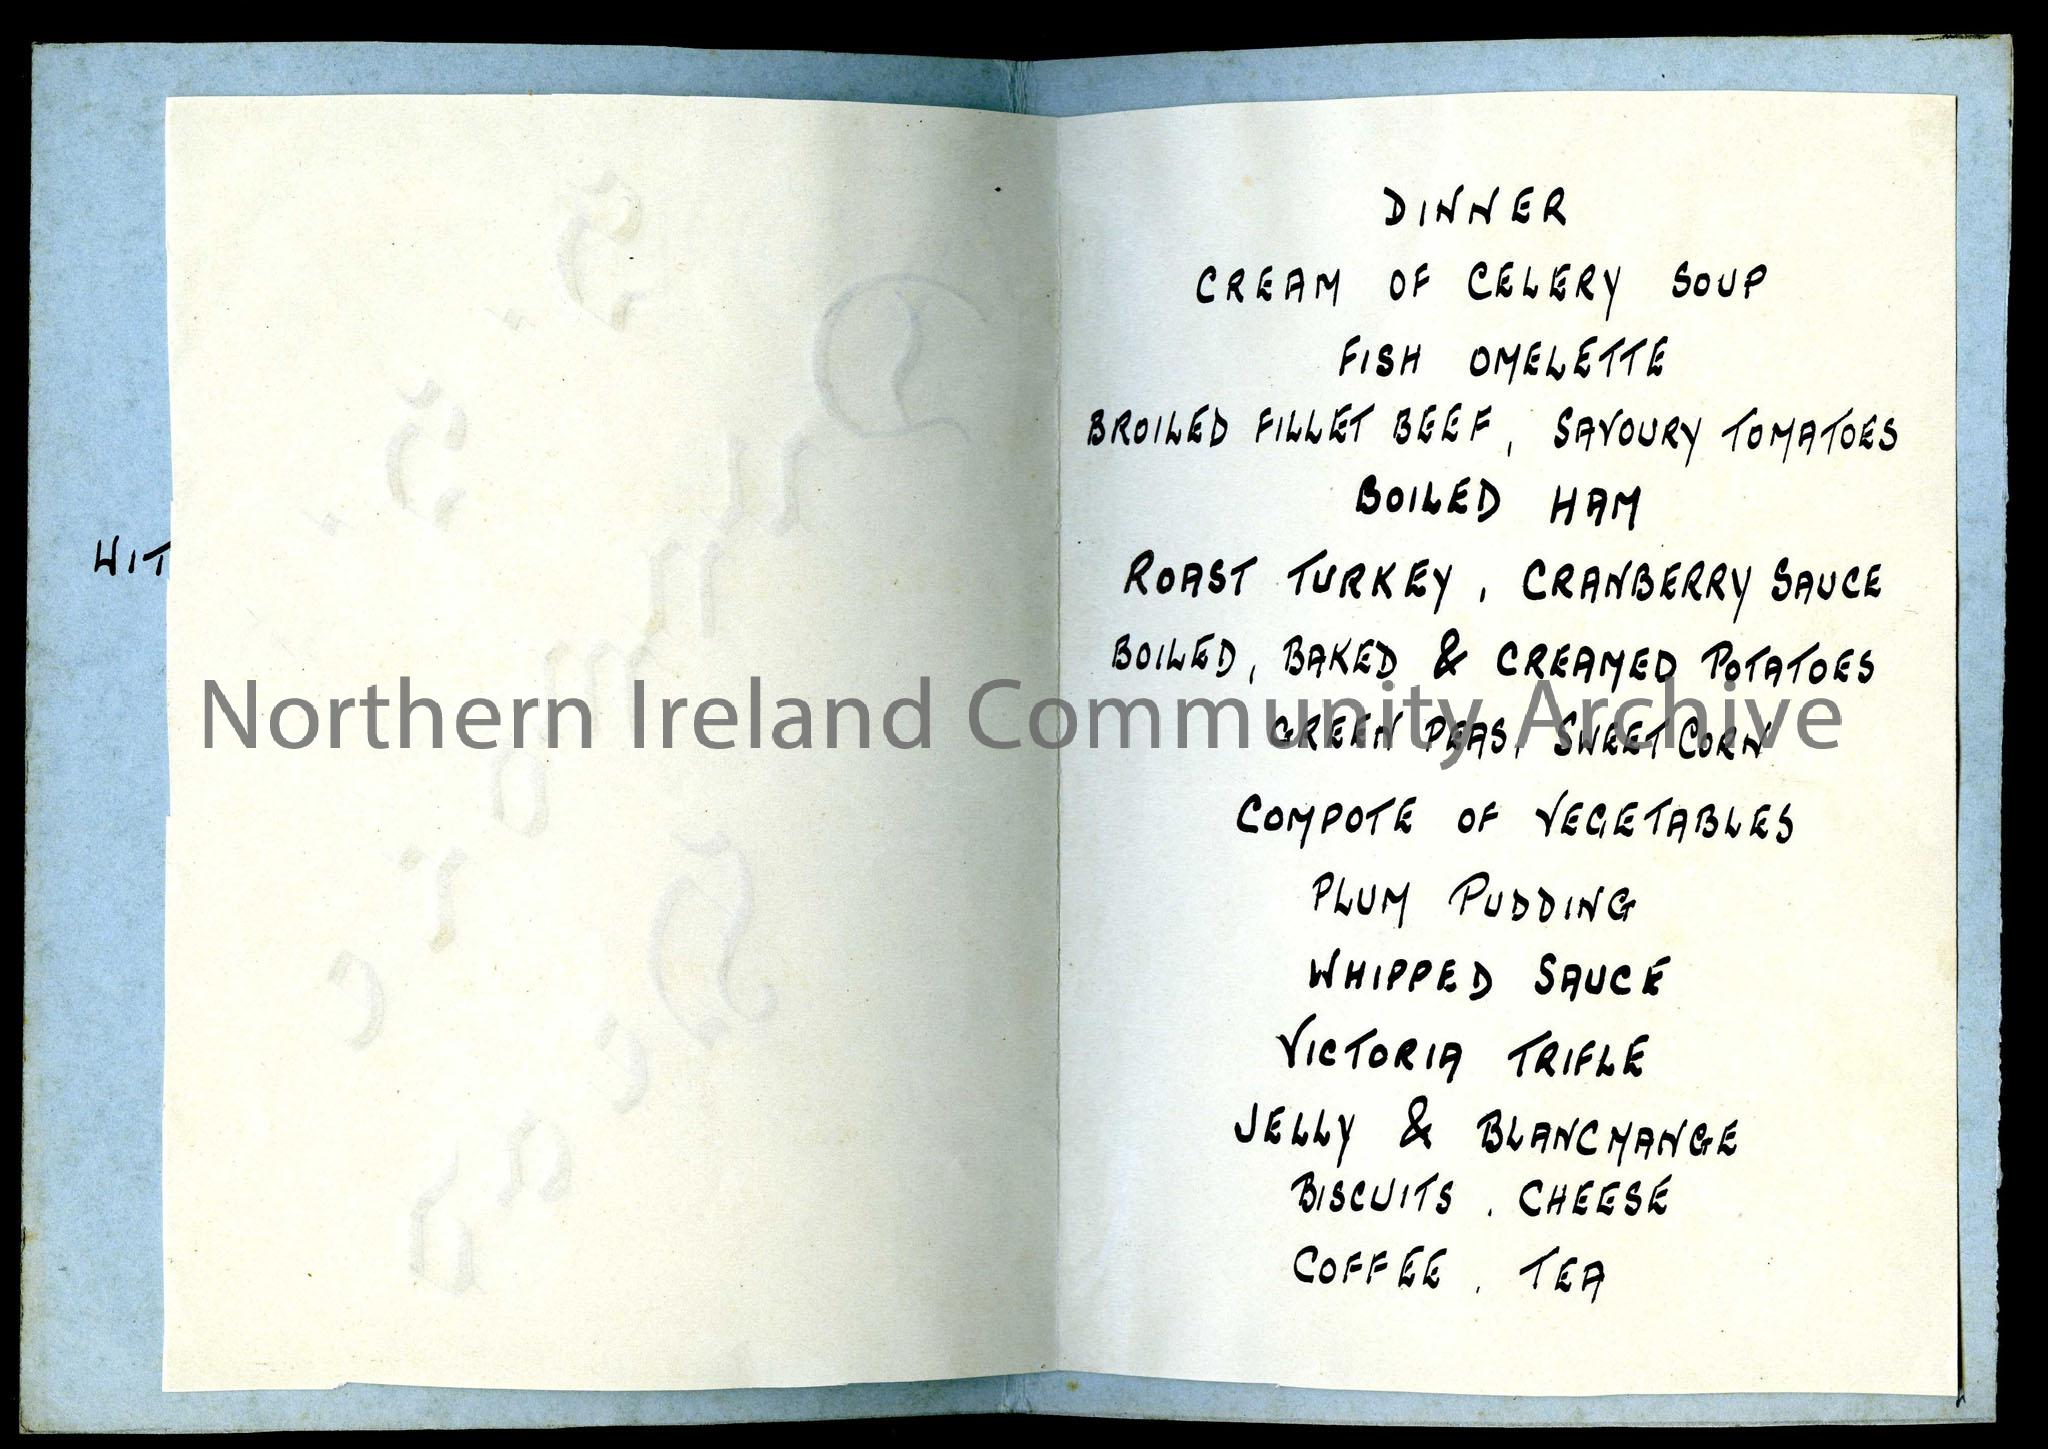 WIT
DINNER
CREAM OF CELERY SOUP
FISH OMELETTE
BROILED FILLET BEEF, SAVOURY TOMATOES
BOILED HAM
ROAST TURKEY, CRANBERRY SAUCE
BOILED, BAKED & CREAMED POTATOES
Northern Ireland Community Archive
GREEN PEAS, SWEET CORN
COMPOTE OF VEGETABLES
PLUM PUDDING
WHIPPED SAUCE
VICTORIA TRIFLE
JELLY & BLANCMANGE
BISCUITS, CHEESE
COFFEE, TEA